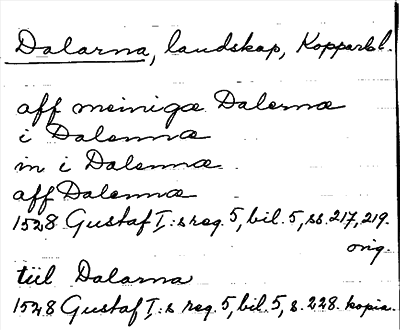 Dalarna, landskap, Kopparb. l.
aff meiniga Dalerna
i Dalerna
in i Dalerna
aff Dalerna
1528 Gustaf I:s reg. 5, bil. 5, ss. 217, 219.
orig.
tiil Dalarna
1528 Gustaf I:s reg. 5, bil. 5, s. 228. kopia.